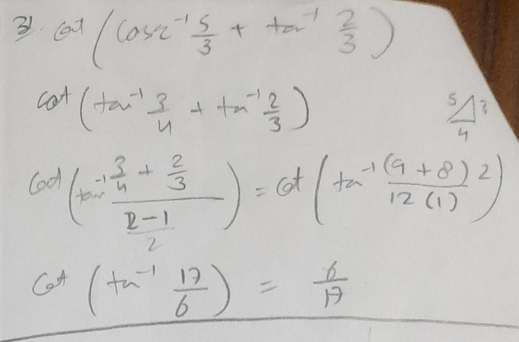 31. cot (cosec⁻¹ 5/3 + tan⁻¹ 2/3)
cot (tan⁻¹ 3/4 + tan⁻¹ 2/3)
5 3 4
cot (tan⁻¹ (3/4 + 2/3) / ((2-1)/2)) = cot (tan⁻¹ (9 + 8) 2 / 12 (1))
cot (tan⁻¹ 17/6) = 6/17